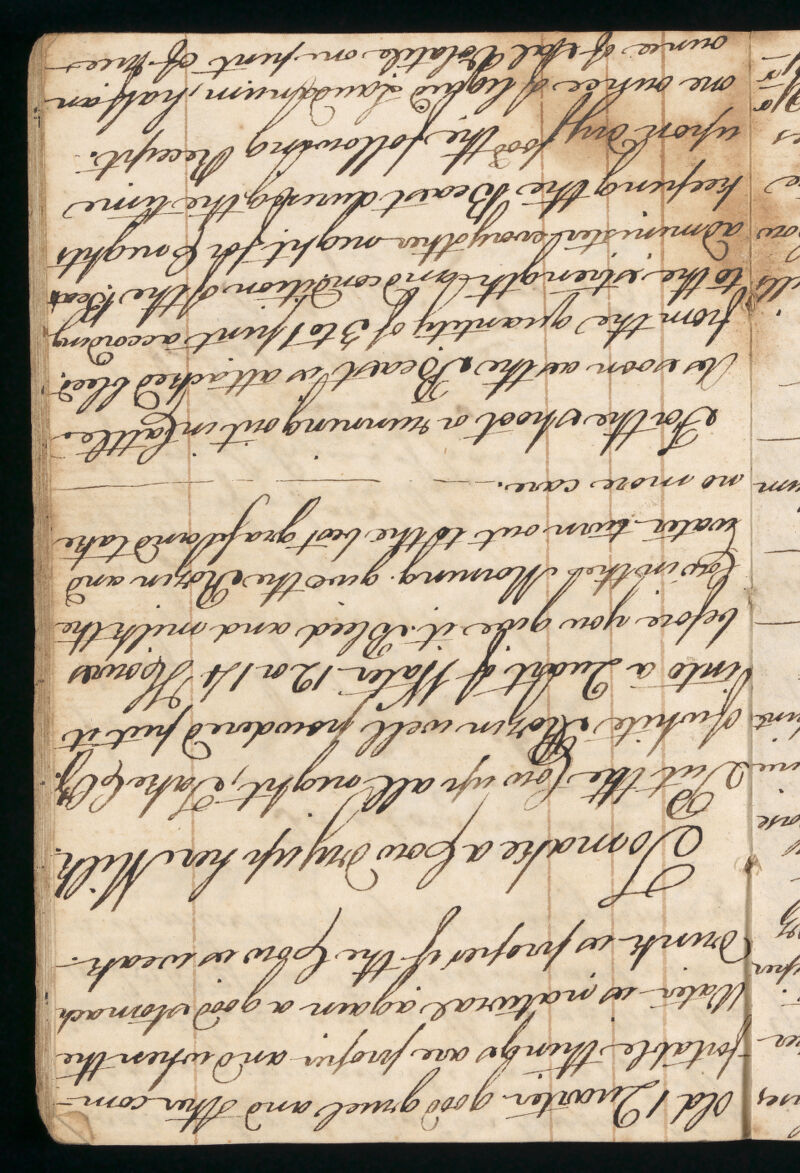 old 1 Quarter good gruel and other com=
fortable things are proper and when the
Water is natural again a good stomach
Drink is proper if the Cow is weak.
To make a Cow Dry up her Milk.
Put the Cow up all night, Take 6 Oz
of white Rozin well powdered put it
into a Quart of Water 12 or 14 Hours
before you give it. Bleed and milk the
Cow in the Morning. give the Rozin and
water turn out to the best grass and take
no more care.
For the Shoot a running out in Cattle.
As soon as the Beast is attacked bleed
from the quantity of 3 to 1 pint according
to the strength and condition of the Beast
administer every other night for 6 nights
keeping the Beast during the time
upon Dry food the following Receipt.
one ounce of liquid Laudanum, half an
ounce of Sal Volatile one pint of